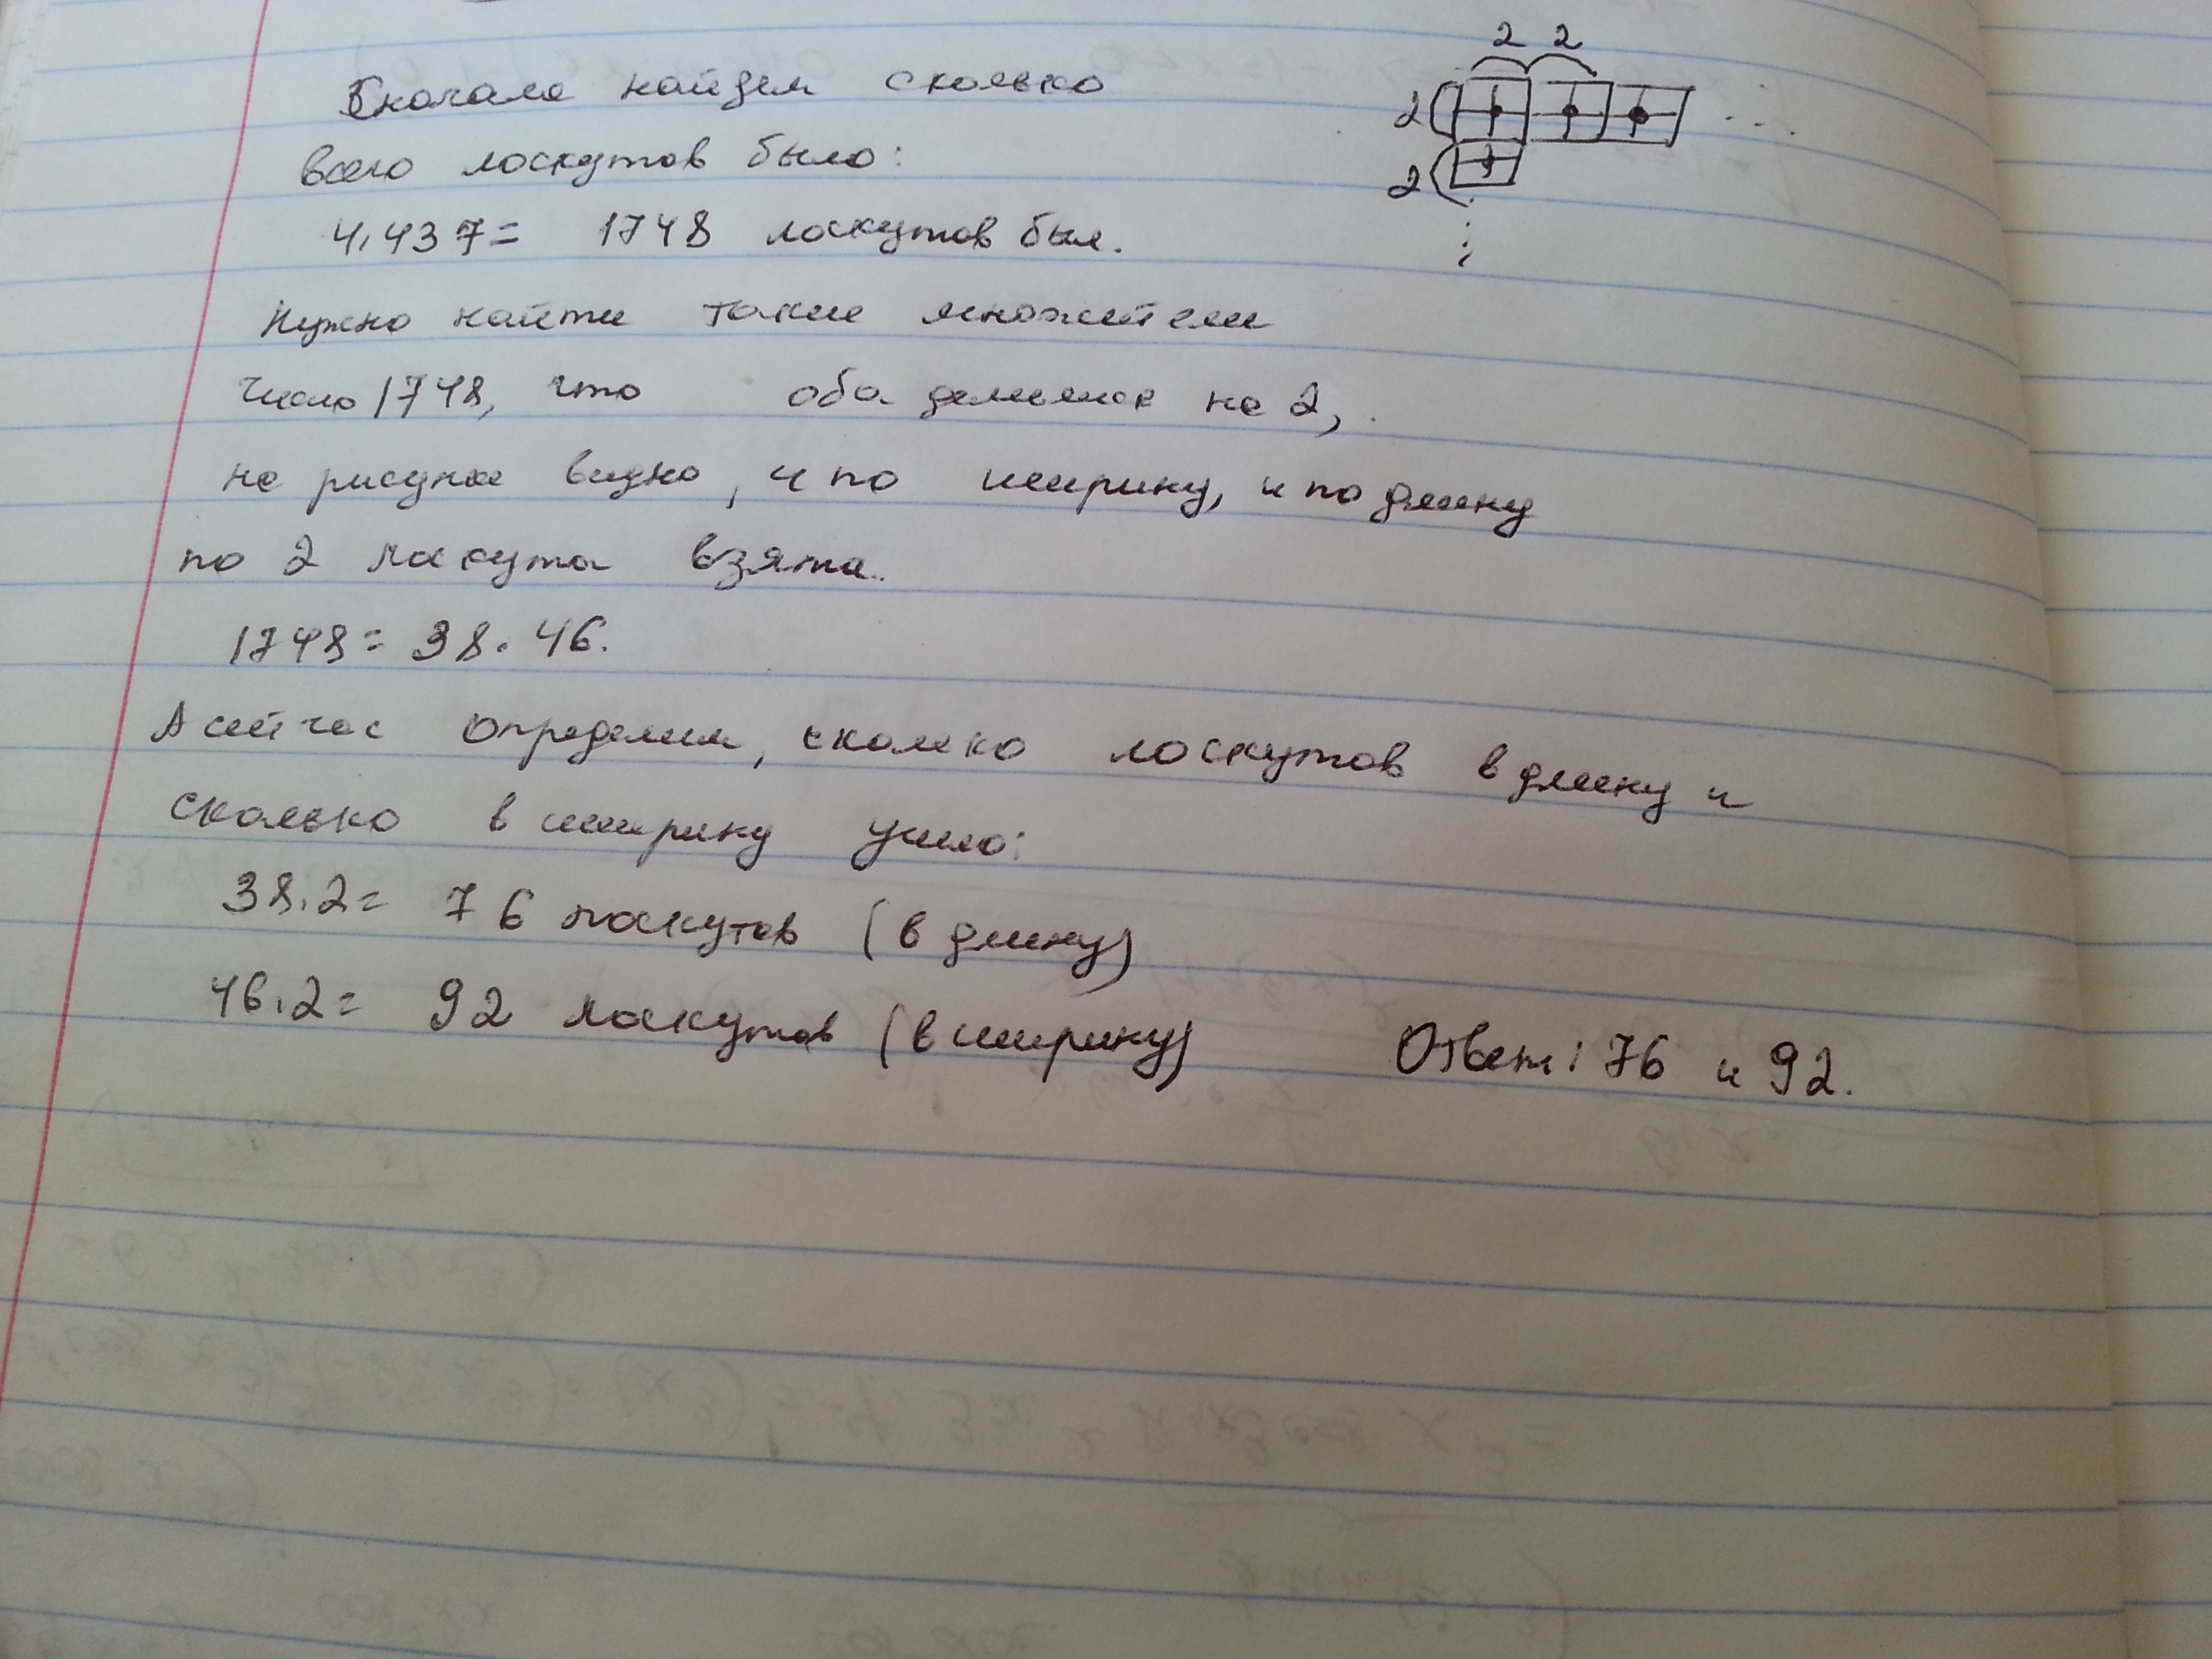 Сначала найдем сколько
всего лоскутов было:
4·437= 1748 лоскутов был.
Нужно найти такие множители
число 1748, что оба делились на 2,
на рисунке видно, и по ширину, и по длину
по 2 лоскута взята.
1748= 38·46.
А сейчас определим, сколько лоскутов в длину и
сколько в ширину ушло:
38·2= 76 лоскутов (в длину)
46·2= 92 лоскутов (в ширину)
Ответ: 76 и 92.
2 2
2
...
2